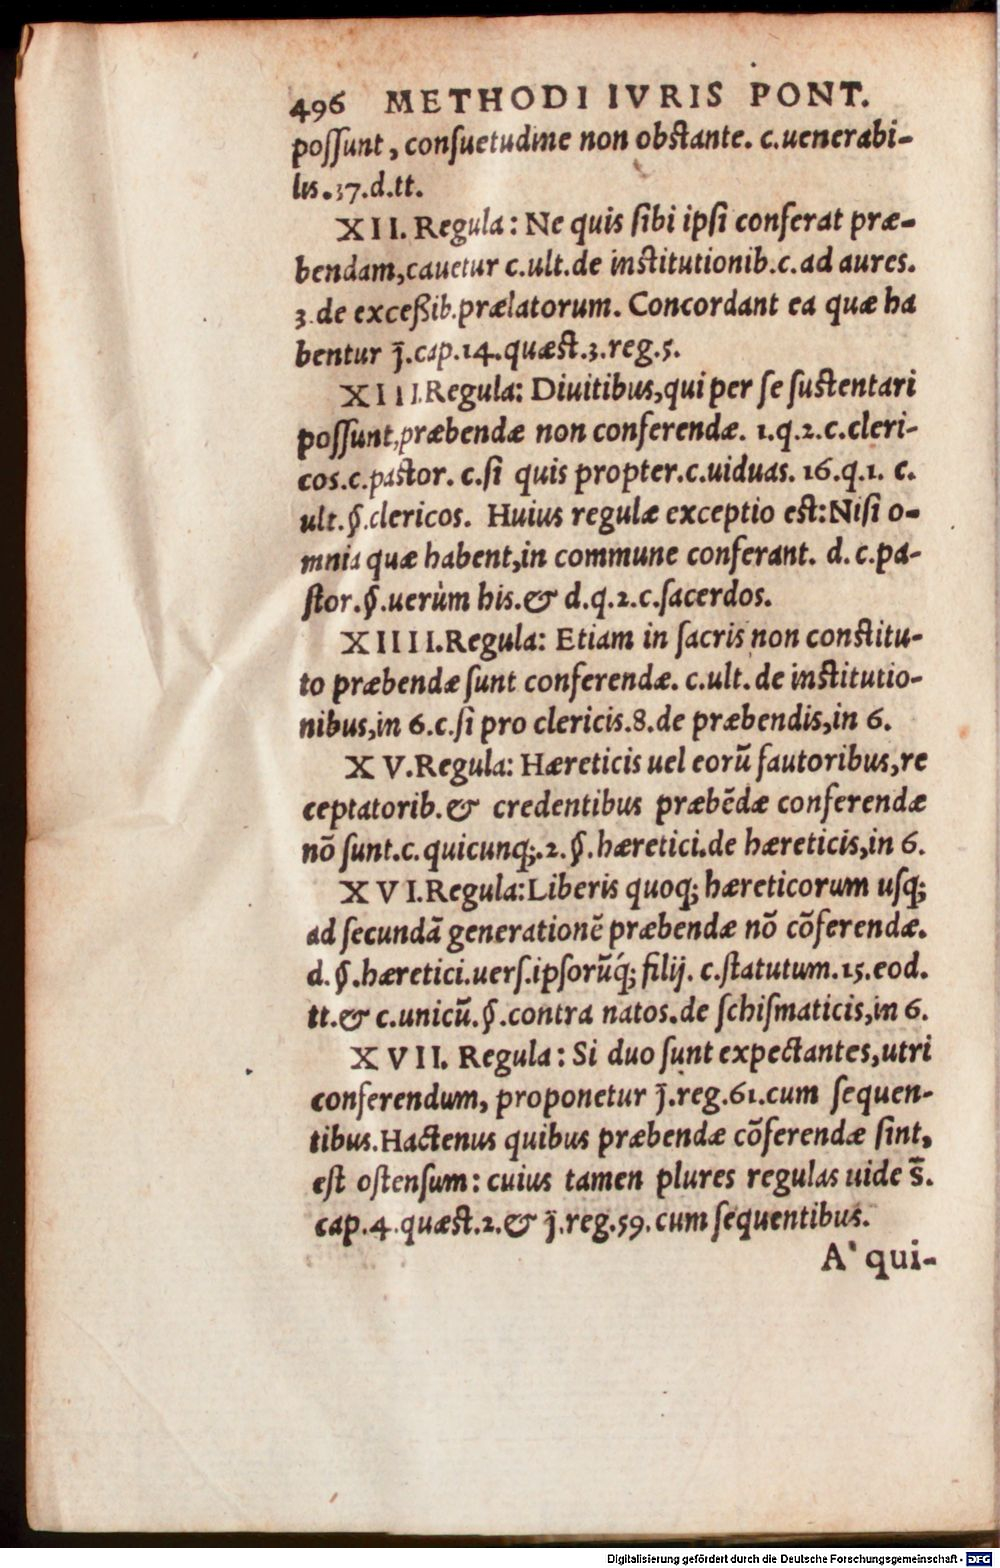 496 METHODI IVRIS PONT.
poſſunt, conſuetudine non obstante. c.uenerabi-
lis.37.d.tt.
XII. Regula: Ne quis ſibi ipſi conferat præ-
bendam,cauetur c.ult.de institutionib.c.ad aures.
3.de exceßib.prælatorum. Concordant ea quæ ha
bentur j̄.cap.14.quæst.3.reg.5.
XIII.Regula: Diuitibus,qui per ſe ſustentari
poſſunt,præbendæ non conferendæ. 1.q.2.c.cleri-
cos.c.pastor. c.ſi quis propter.c.uiduas. 16.q.1. c.
ult.§.clericos. Huius regulæ exceptio est:Niſi o-
mnia quæ habent,in commune conferant. d.c.pa-
ſtor.§.uerùm his.& d.q.2.c.ſacerdos.
XIIII.Regula: Etiam in ſacris non constitu-
to præbendæ ſunt conferendæ. c.ult.de institutio-
nibus,in 6.c.ſi pro clericis.8.de præbendis,in 6.
XV.Regula: Hæreticis uel eorū fautoribus,re
ceptatorib.& credentibus præbēdæ conferendæ
nō ſunt.c.quicunq;.2.§.hæretici.de hæreticis,in 6.
XVI.Regula:Liberis quoq; hæreticorum uſq;
ad ſecundā generationē præbendæ nō cōferendæ.
d.§.hæretici.uerſ.ipſorūq́; filij. c.ſtatutum.15.eod.
tt.& c.unicū.§.contra natos.de ſchiſmaticis,in 6.
XVII. Regula: Si duo ſunt expectantes,utri
conferendum, proponetur j̄.reg.61.cum ſequen-
tibus.Hactenus quibus præbendæ cōferendæ ſint,
eſt oſtenſum: cuius tamen plures regulas uide s̄.
cap.4.quæst.2.& j̄.reg.59.cum ſequentibus.
A' qui-
Digitalisierung gefördert durch die Deutsche Forschungsgemeinschaft - DFG